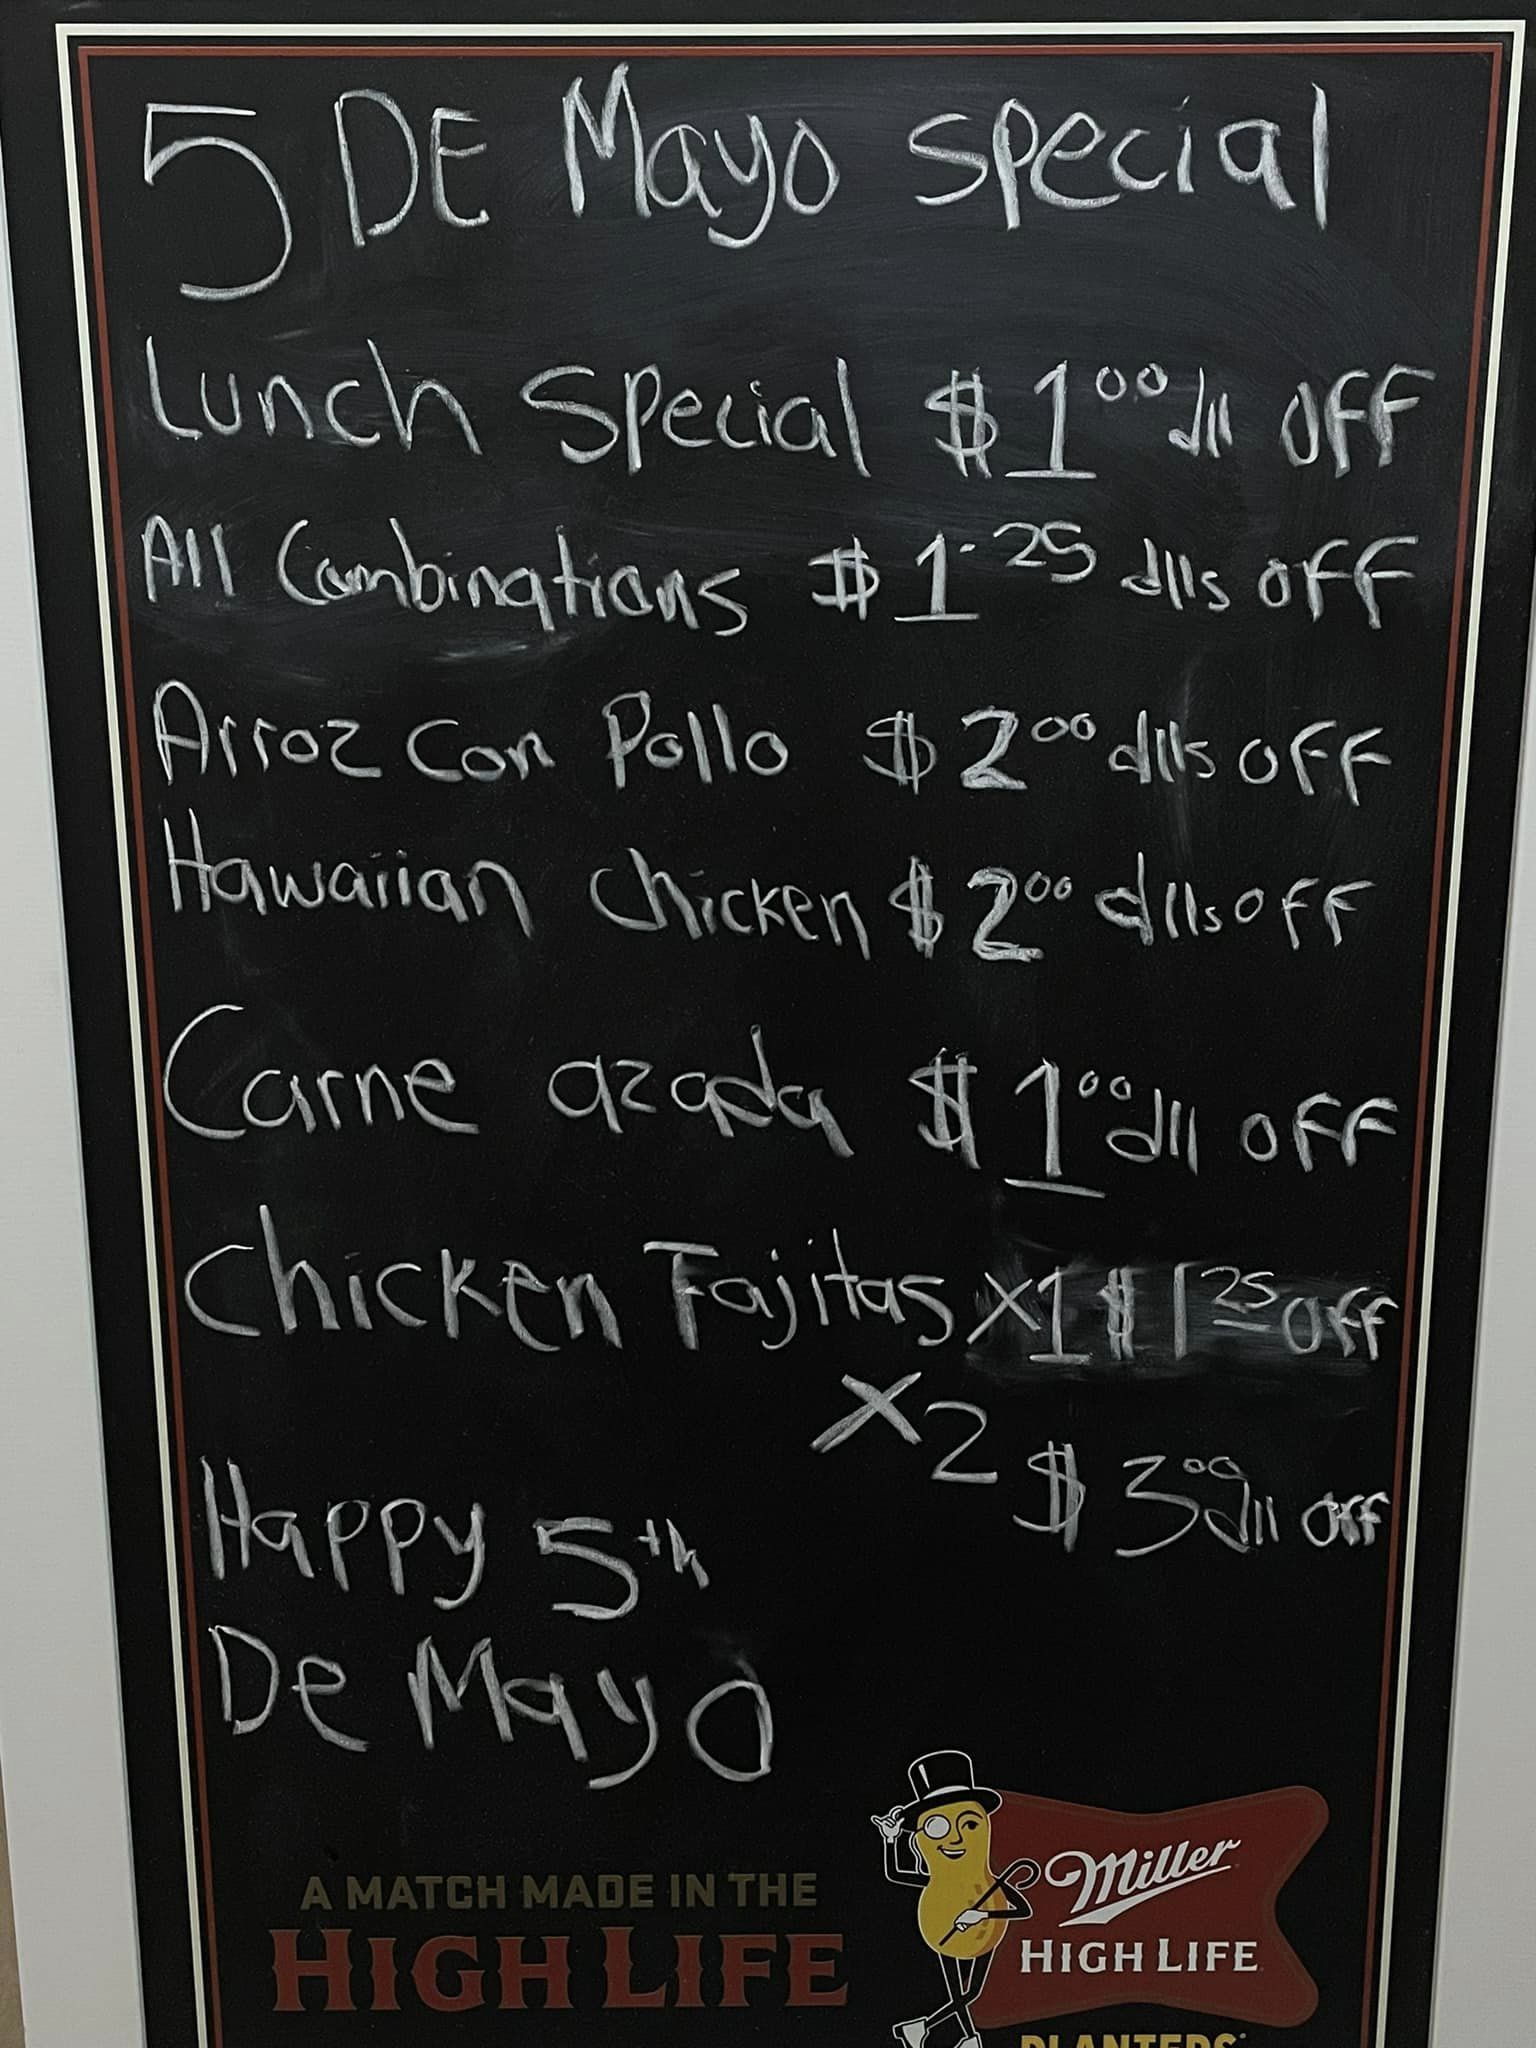 5 DE Mayo special
Lunch Special $1.00 dll OFF
All Combinations $1.25 dlls OFF
Arroz Con Pollo $2.00 dlls OFF
Hawaiian Chicken $2.00 dlls OFF
Carne azada $1.00 dll OFF
Chicken Fajitas x1 $1.25 OFF
x2 $3.00 dll OFF
Happy 5th
De Mayo
A MATCH MADE IN THE
HIGH LIFE
Miller
HIGH LIFE
PLANTERS